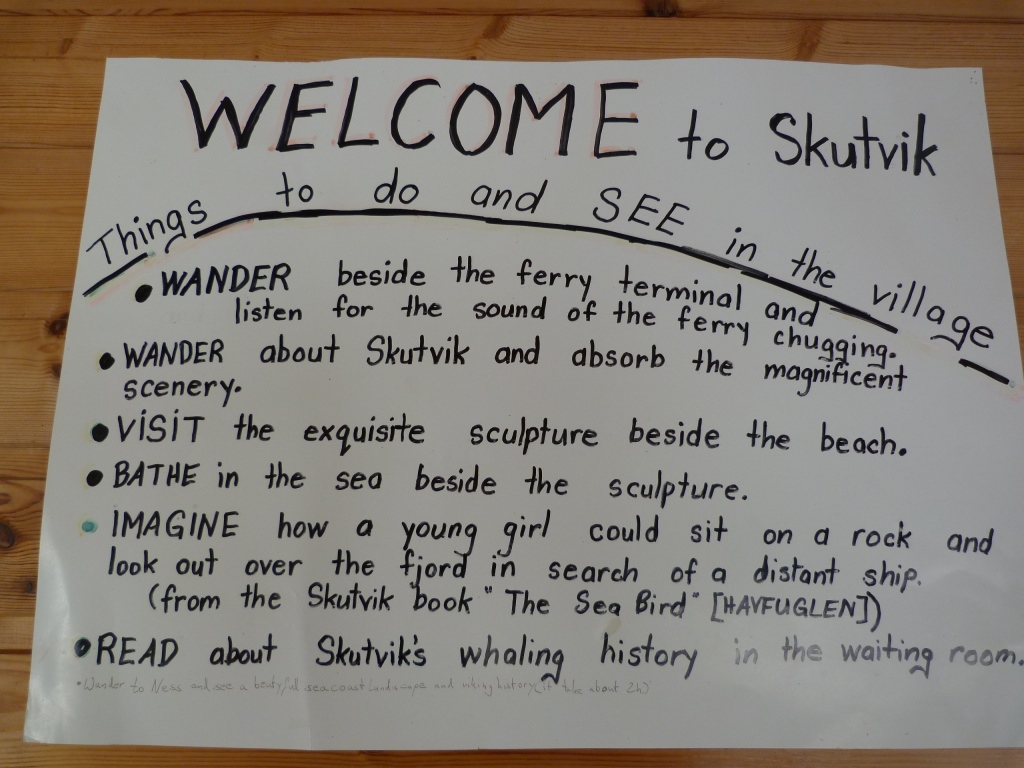 WELCOME to Skutvik
Things to do and SEE in the village
• WANDER beside the ferry terminal and
listen for the sound of the ferry chugging.
• WANDER about Skutvik and absorb the magnificent
scenery.
• VISIT the exquisite sculpture beside the beach.
• BATHE in the sea beside the sculpture.
• IMAGINE how a young girl could sit on a rock and
look out over the fjord in search of a distant ship.
(from the Skutvik book "The Sea Bird" [HAVFUGLEN])
• READ about Skutvik's whaling history in the waiting room.
• Wander to Ness and see a beutyful seacoust landscape and viking history (it take about 2h)